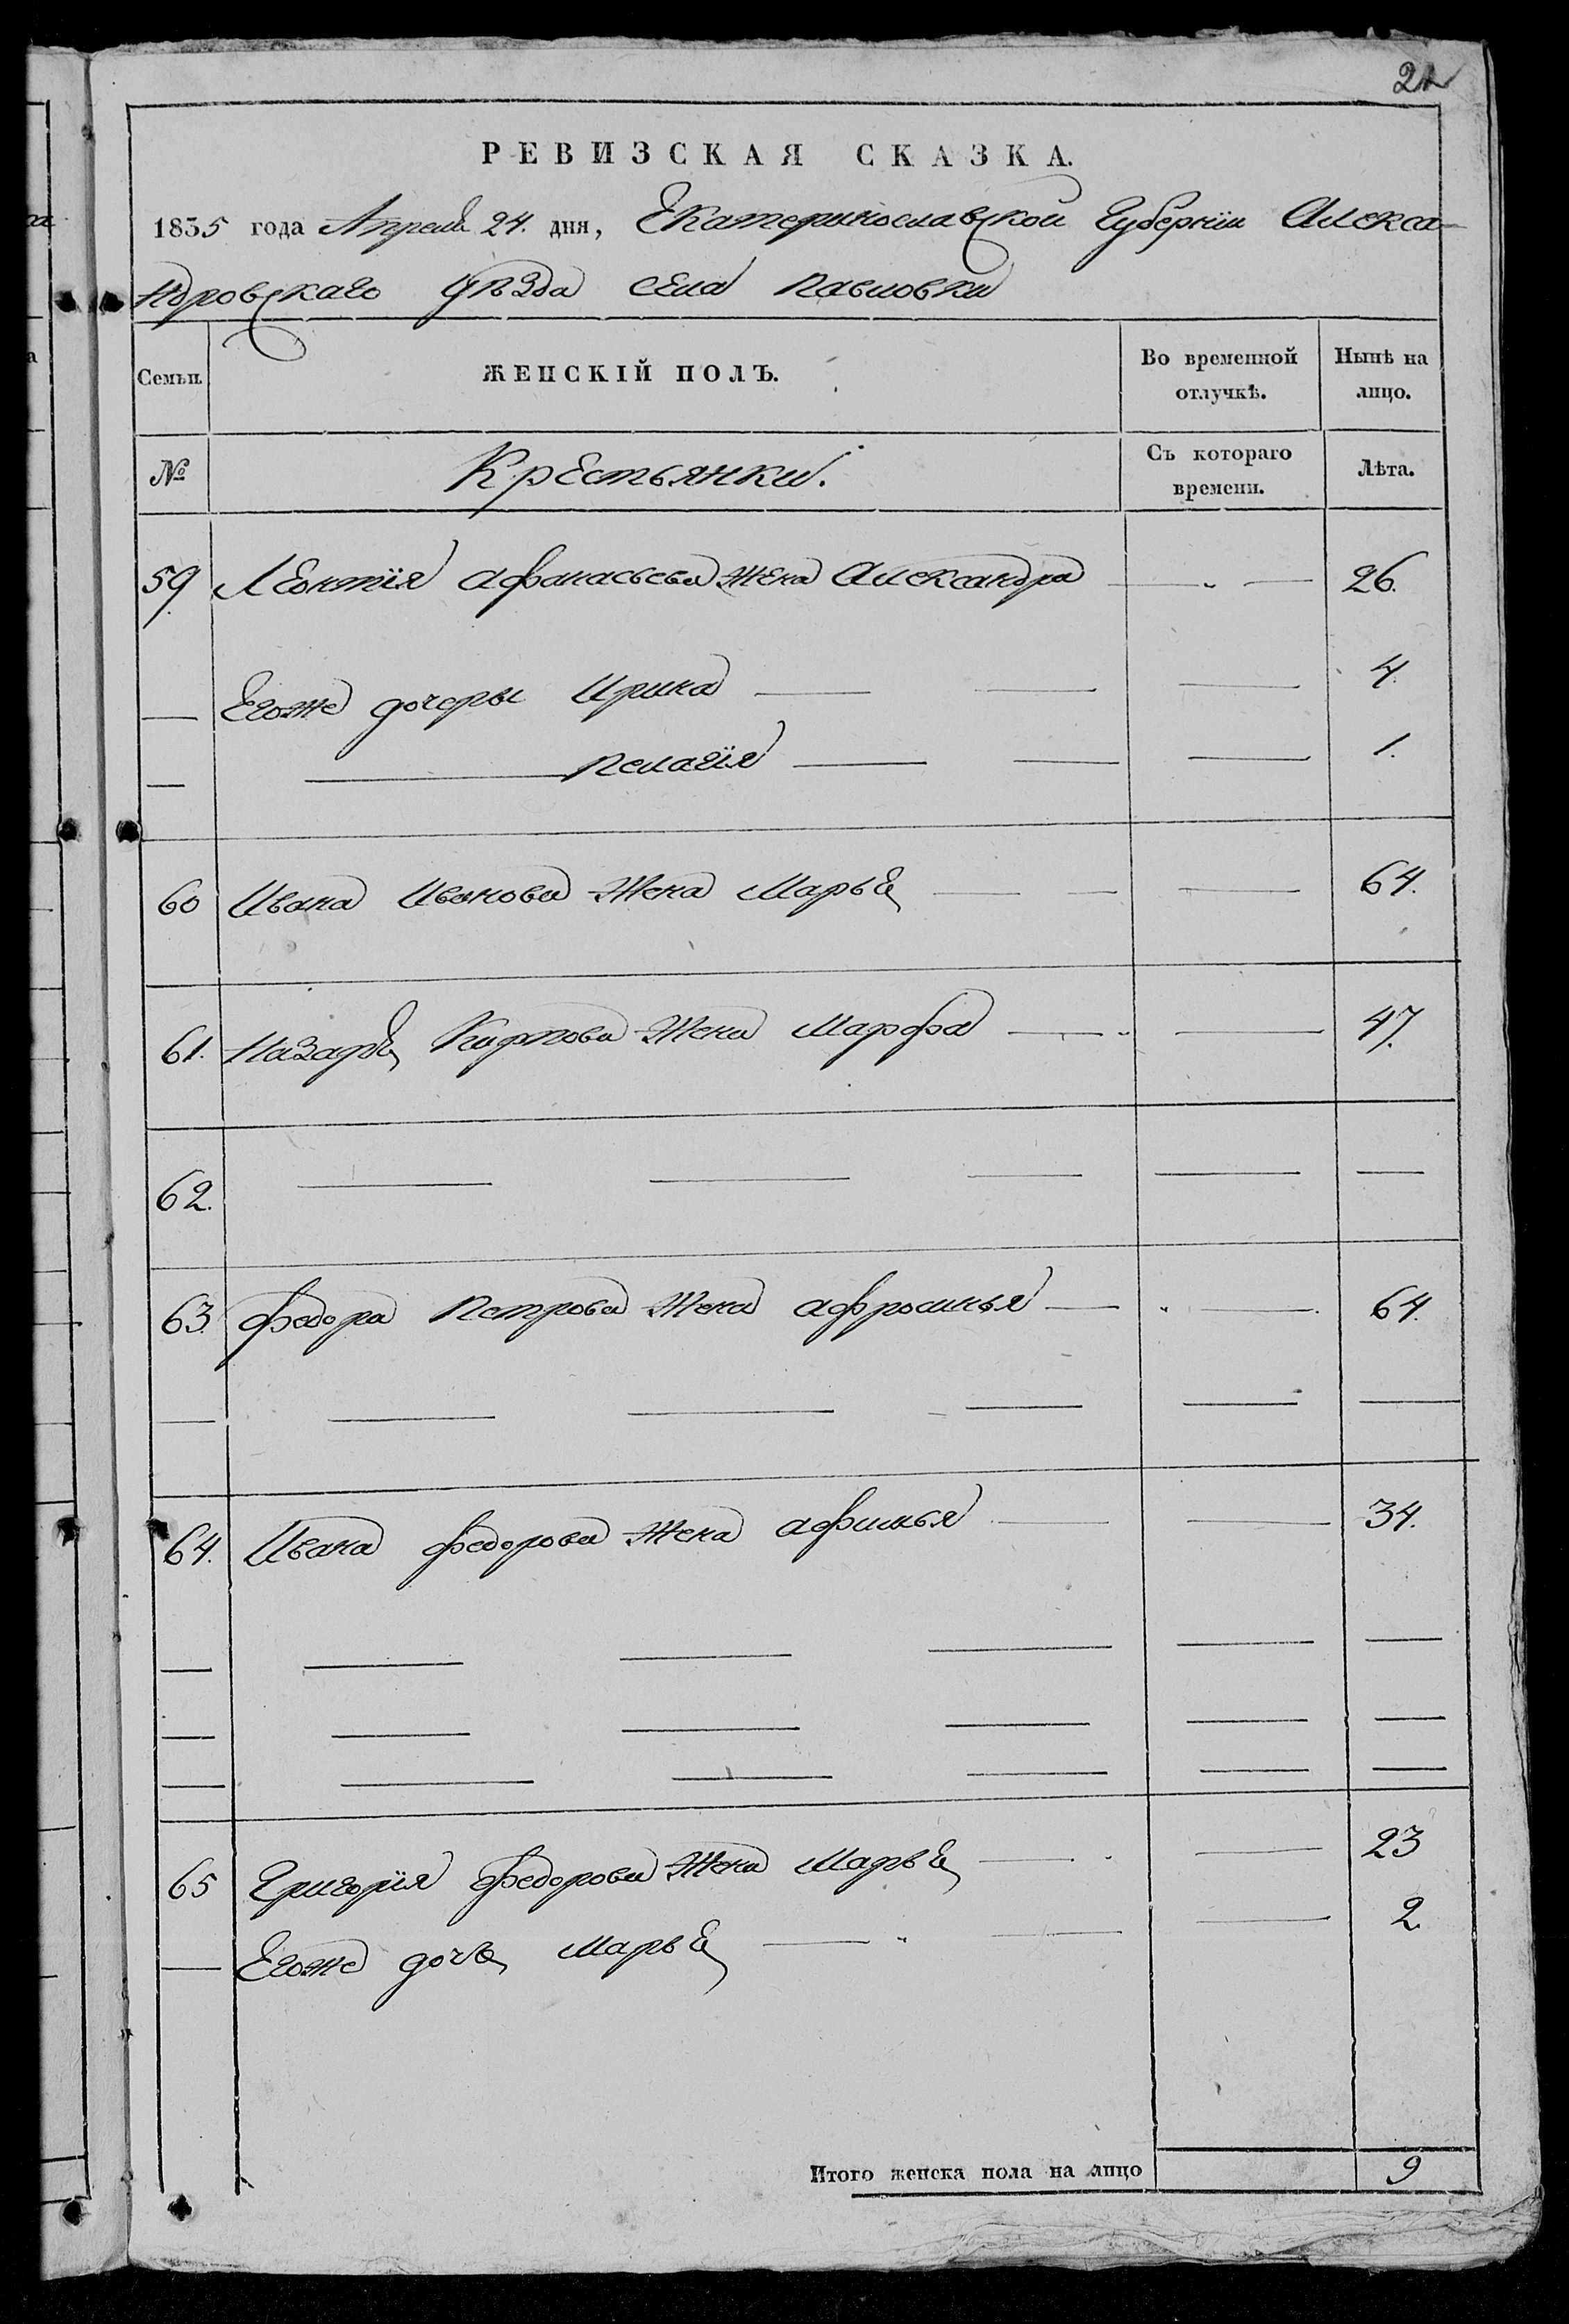 22
РЕВИЗСКАЯ СКАЗКА.
1835 года Апреля 24. дня, Екатеринославской Губернiи Алекса-
ндровскаго уѣзда села Павловки
Семьи. ЖЕНСКIЙ ПОЛЪ. Во временной отлучкѣ. Нынѣ на лицо.
№ Крестьянки. Съ котораго времени. Лѣта.
59. Леонтiя Афанасьева жена Александра — „ — 26.
— Егоже дочеры Ирина — — — 4.
— — Пелагiя — — — 1.
60 Ивана Иванова жена Марья — — — 64.
61. Назарья Карпова жена Марфа — „ — 47.
62. — — — — —
63. Федора Петрова жена Афросинья — „ — 64.
— — — — — —
64. Ивана Федорова жена Афимья — — 34.
— — — — — —
— — — — — —
— — — — — —
65 Григорiя Федорова жена Марья — „ — 23
— Егоже дочь Марья — „ — — 2.
Итого женска пола на лицо 9